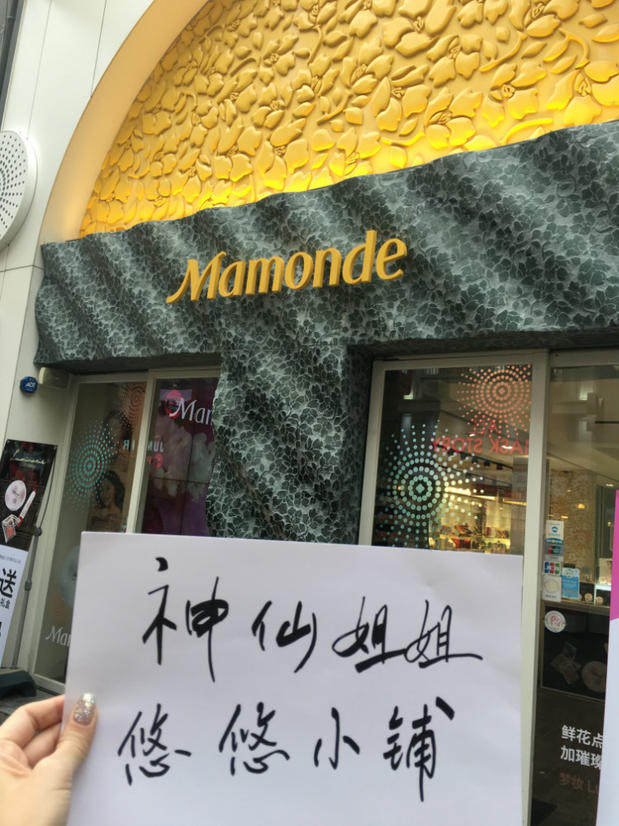 Mamonde
Mam
MASK STORY
送
礼盒
神仙姐姐
悠悠小铺
鲜花点
加璀璨
梦妆